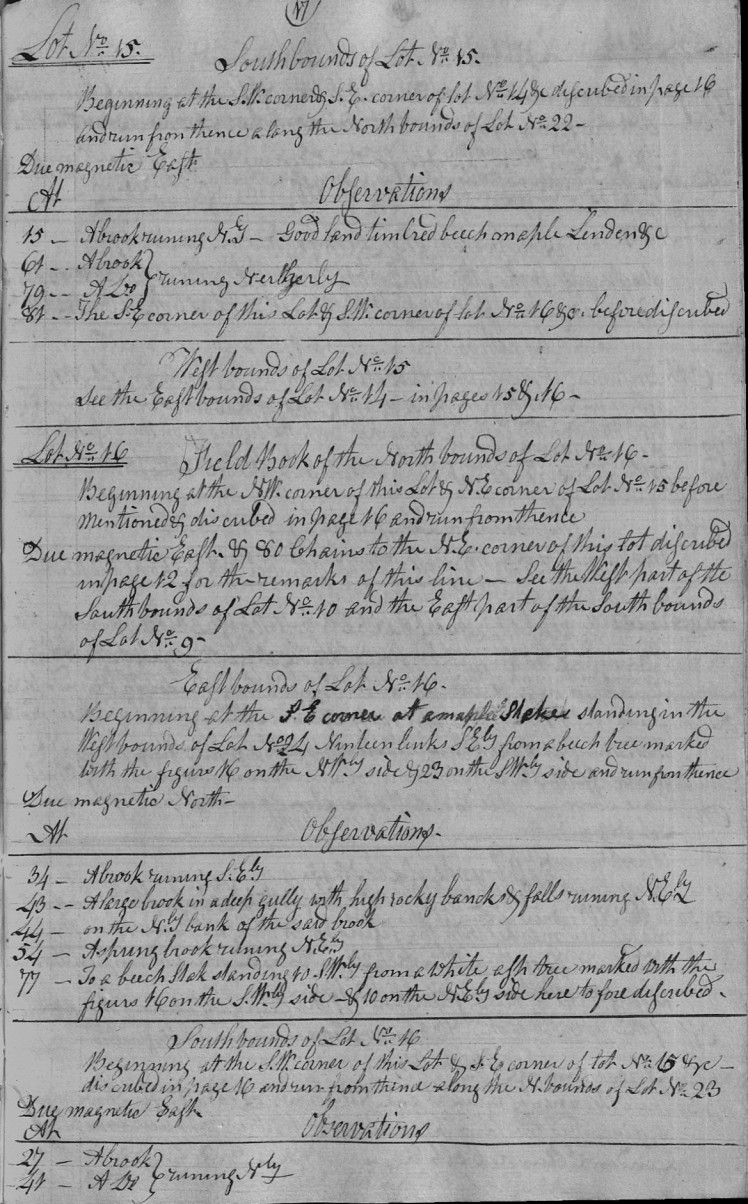 17
Lot No. 15.
South bounds of Lot No. 15.
Beginning at the S.W. corner & S.E. corner of lot No. 14 &c discribed in page 16
and run from thence along the North bounds of Lot No. 22 -
Due magnetic East
At Observations
15 - A brook runing N.ly - Good land timbred beech maple Linden &c
61 - A brook } runing Northerly
79 - A Do
81 - The S.E corner of this Lot & S.W. corner of lot No. 16 &c. before discribed
West bounds of Lot No. 15
See the East bounds of Lot No. 14 - in pages 15 & 16 -
Lot No. 16 Field Book of the North bounds of Lot No. 16 -
Beginning at the N.W. corner of this Lot & N.E corner of Lot No. 15 before
mentioned & discribed in page 16 and run from thence
Due magnetic East & 80 Chains to the N.E. corner of this lot discribed
in page 12 for the remarks of this line - See the West part of the
South bounds of Lot No. 10 and the East part of the South bounds
of Lot No. 9 -
East bounds of Lot No. 16 -
Beginning at the S.E corner at a maple Stake standing in the
West bounds of Lot No. 24 Ninteen links S.Ely from a beech tree marked
with the figurs 16 on the N.Wly side & 23 on the S.Wly side and run from thence
Due magnetic North -
At Observations -
34 - A brook runing S.Ely
43 - A large brook in a deep gully with high rocky bancks & falls runing N.Ely
44 - on the N.ly bank of the said brook
54 - A spring brook runing N.Ely
77 - To a beech Stak standing 10 S.Wly from a white ash tree marked with the
figurs 16 on the S.Wly side - & 10 on the N.Ely side here to fore discribed -
South bounds of Lot No. 16
Beginning at the S.W. corner of this Lot & S.E corner of lot No. 15 &c -
discribed in page 16 and run from thence along the N. bounds of Lot No. 23
Due magnetic East
At Observations
27 - A brook } runing Nly
41 - A Do